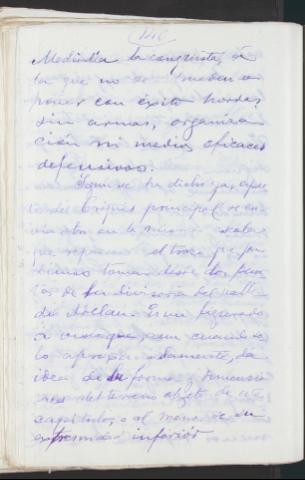 146
Mediodía la conquista, á
la que no se pueden o-
poner con éxito hordas
sin armas, organiza
ción ni medios eficaces
defensivos.
Segun se ha dicho ya, apar
te del Crique principal se en
vía otro en la misma
que el trozo que pu
dieramos tomar desde los pun
tos de la divisoria del valle
de Aclan. Es un figurado
á cróquis, que aun cuando so
lo aproximadamente, da
idea de la forma y dimensio
nes del terreno objeto de este
capítulo, ó al menos de su
extremidad inferior